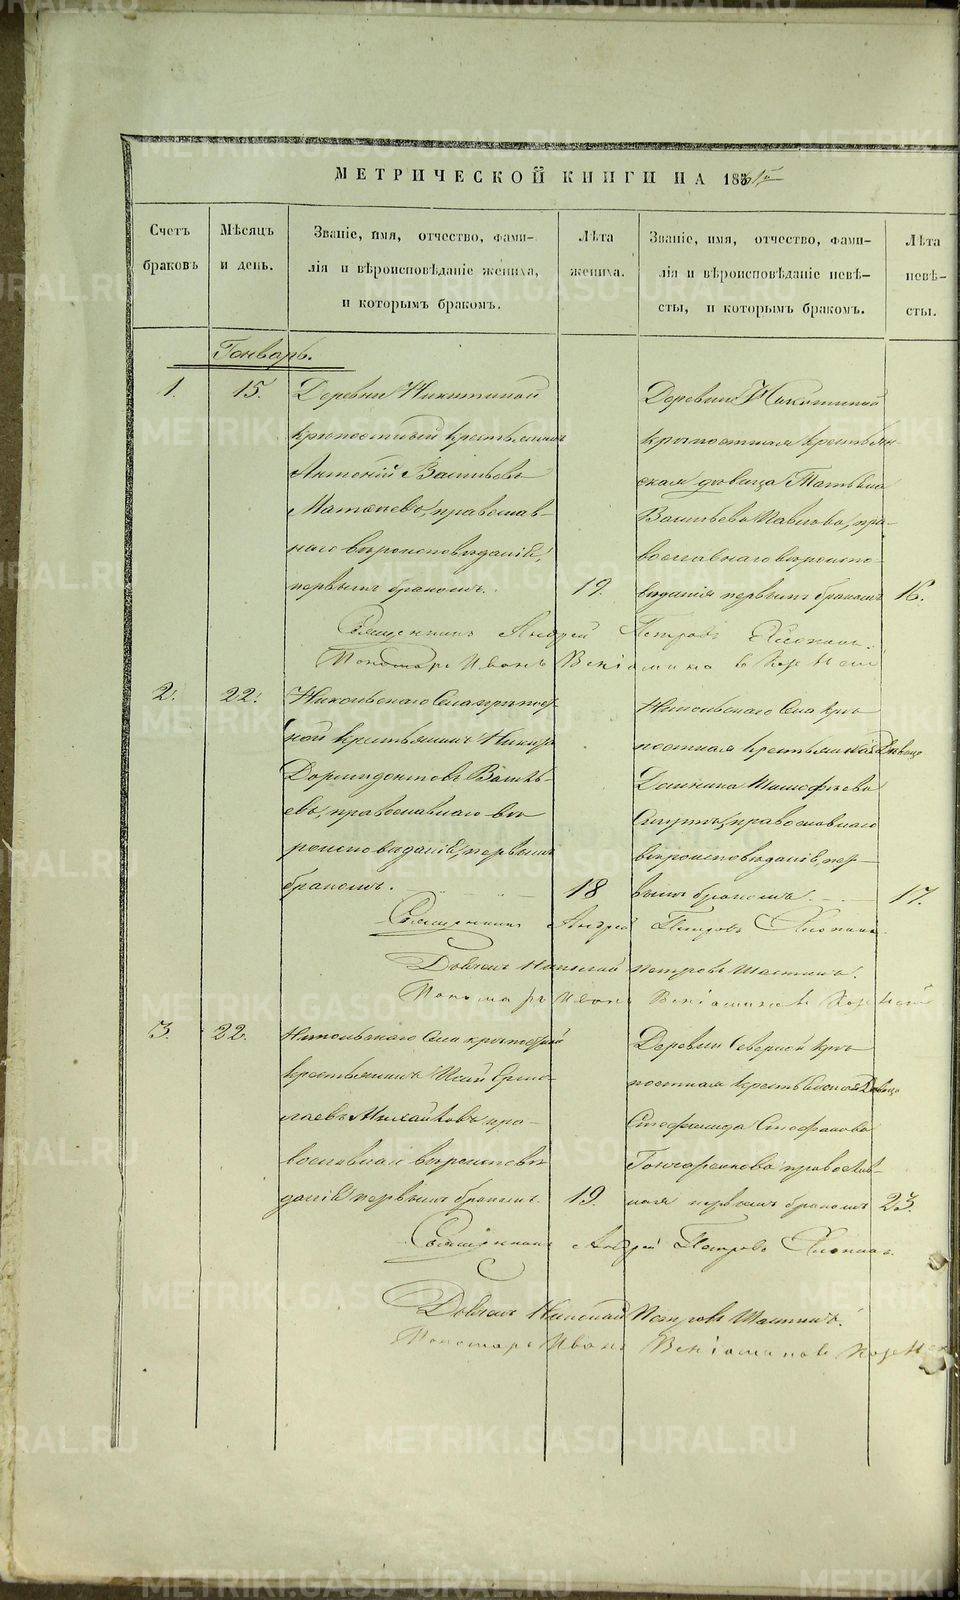 МЕТРИЧЕСКОЙ КНИГИ НА 18
Счетъ браковъ
Мѣсяцъ и день.
Званіе, имя, отчество, фами-
лія и вѣроисповѣданіе жениха,
и которымъ бракомъ.
Лѣта
жениха.
Званіе, имя, отчество, фами-
лія и вѣроисповѣданіе невѣ-
сты, и которымъ бракомъ.
Лѣта
невѣ-
сты.
Генварь.
1.
15.
Деревни Никитиной
крѣпостный крестьянинъ
Антоній Васильевъ
православ-
наго вѣроисповѣданія,
первымъ бракомъ.
19.
Деревни Никитиной
крѣпостная крестьян-
ская дѣвица Татьяна
Васильева Павлова, пра-
вославнаго вѣроиспо-
вѣданія первымъ бракомъ
16.
Священникъ Андрей Петровъ
Пономарь Иванъ Веніаминовъ
2.
22.
Никольскаго Села крѣпост
ной крестьянинъ
Дормидонтовъ Василь-
евъ, православнаго вѣ
роисповѣданія, первымъ
бракомъ.
18
Никольскаго Села крѣ
постная крестьянская Дѣвица
Домнина
православнаго
вѣроисповѣданія, пер-
вымъ бракомъ.
17.
Священникъ Андрей Петровъ
Дьячекъ Николай Петровъ
Пономарь Иванъ Веніаминовъ
3.
22.
Никольскаго Села крѣпостной
крестьянинъ Исай Ермо-
лаевъ Михайловъ пра-
вославнаго вѣроисповѣ
данія первымъ бракомъ.
19.
Деревни Северной крѣ
постная крестьянская Дѣвица
Стефанида Стефанова
Гончаренкова православ-
ная первымъ бракомъ
23.
Священникъ Андрей Петровъ
Дьячекъ Николай Петровъ
Пономарь Иванъ Веніаминовъ
METRIKI.GASO-URAL.RU